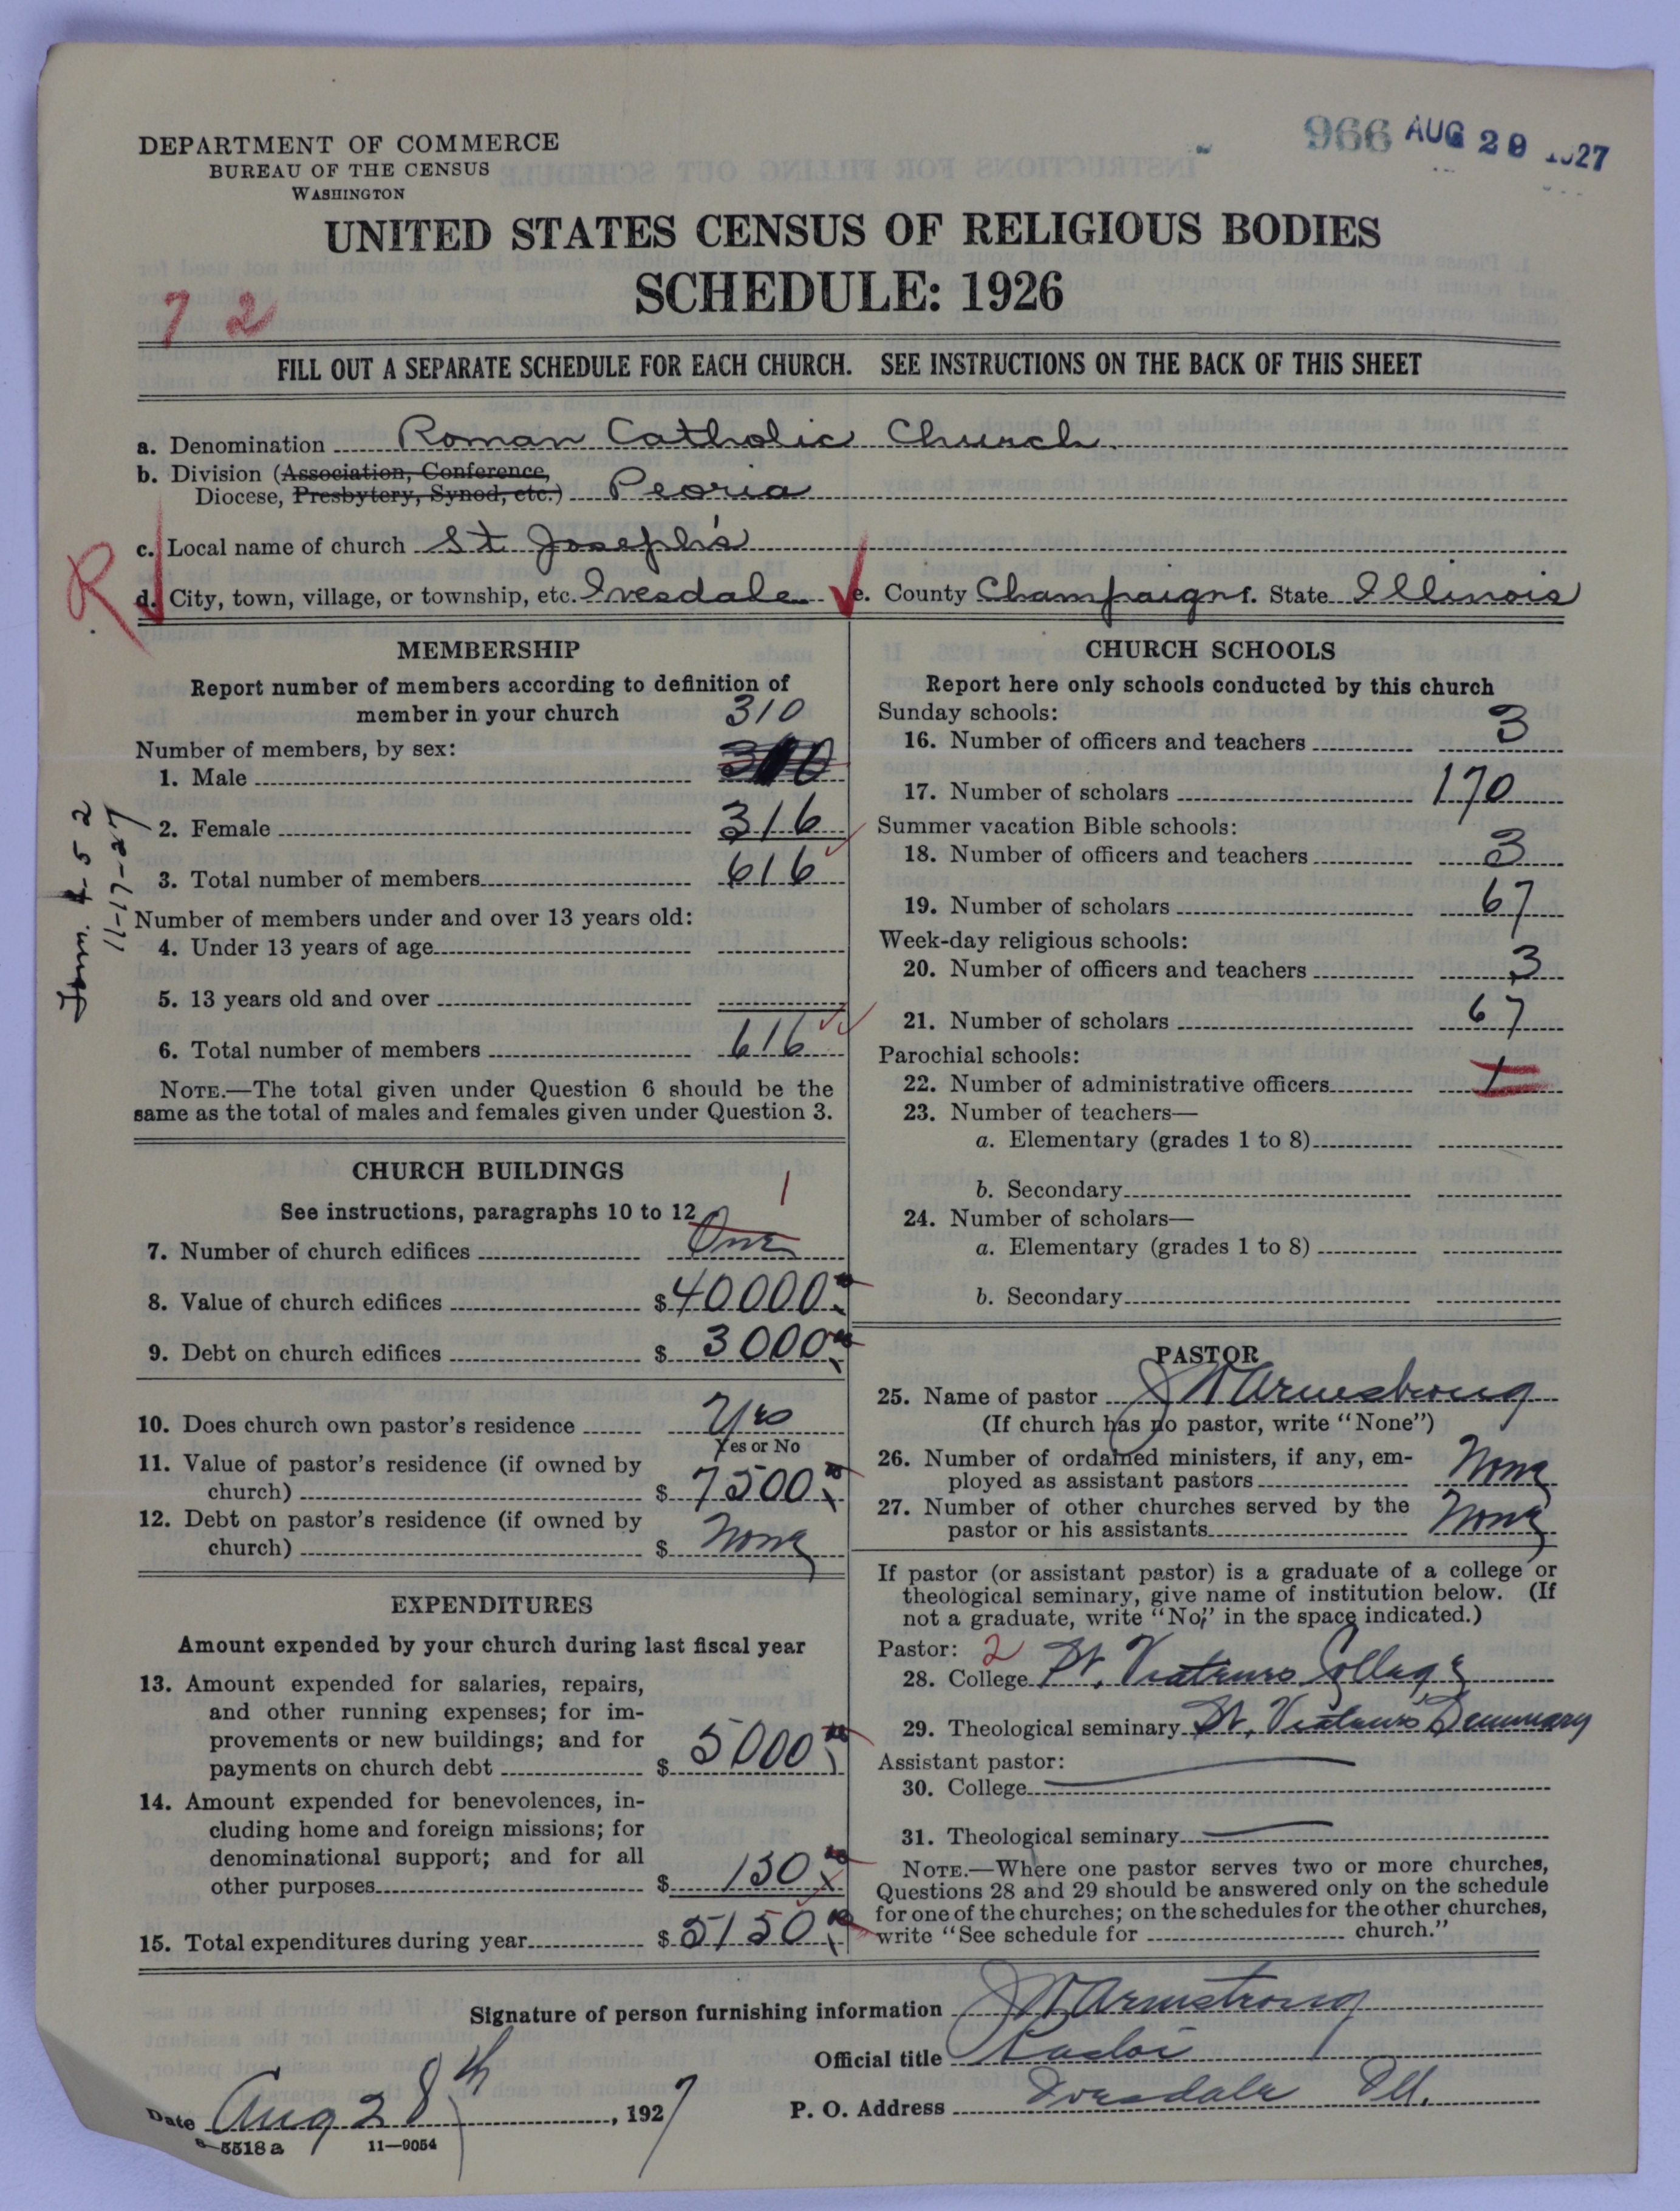 966 AUG 29 1927
DEPARTMENT OF COMMERCE
BUREAU OF THE CENSUS
WASHINGTON
UNITED STATES CENSUS OF RELIGIOUS BODIES
SCHEDULE: 1926
7 2
FILL OUT A SEPARATE SCHEDULE FOR EACH CHURCH. SEE INSTRUCTIONS ON THE BACK OF THIS SHEET
a. Denomination Roman Catholic Church
b. Division (Association, Conference,
Diocese, Presbytery, Synod, etc.) Peoria
c. Local name of church St Joseph's
R
d. City, town, village, or township, etc. Ivesdale e. County Champaign f. State Illinois
MEMBERSHIP
Report number of members according to definition of
member in your church
310
Number of members, by sex:
1. Male 300
2. Female 316
3. Total number of members 616
Number of members under and over 13 years old:
4. Under 13 years of age
5. 13 years old and over
6. Total number of members 616
NOTE.—The total given under Question 6 should be the
same as the total of males and females given under Question 3.
11-17-27
CHURCH BUILDINGS
See instructions, paragraphs 10 to 12
1
7. Number of church edifices One
8. Value of church edifices $ 40000
9. Debt on church edifices $ 3000
10. Does church own pastor's residence Yes
Yes or No
11. Value of pastor's residence (if owned by
church) $ 7500
12. Debt on pastor's residence (if owned by
church) $ None
EXPENDITURES
Amount expended by your church during last fiscal year
13. Amount expended for salaries, repairs,
and other running expenses; for im-
provements or new buildings; and for
payments on church debt $ 5000
14. Amount expended for benevolences, in-
cluding home and foreign missions; for
denominational support; and for all
other purposes $ 150
15. Total expenditures during year $ 5150
CHURCH SCHOOLS
Report here only schools conducted by this church
Sunday schools:
16. Number of officers and teachers 3
17. Number of scholars 170
Summer vacation Bible schools:
18. Number of officers and teachers 3
19. Number of scholars 67
Week-day religious schools:
20. Number of officers and teachers 3
21. Number of scholars 67
Parochial schools:
22. Number of administrative officers 1
23. Number of teachers—
a. Elementary (grades 1 to 8)
b. Secondary
24. Number of scholars—
a. Elementary (grades 1 to 8)
b. Secondary
PASTOR
25. Name of pastor J W Armstrong
(If church has no pastor, write "None")
26. Number of ordained ministers, if any, em-
ployed as assistant pastors None
27. Number of other churches served by the
pastor or his assistants None
If pastor (or assistant pastor) is a graduate of a college or
theological seminary, give name of institution below. (If
not a graduate, write "No," in the space indicated.)
Pastor: 2
28. College St. Viateurs College
29. Theological seminary St. Viateurs Seminary
Assistant pastor:
30. College
31. Theological seminary
NOTE.—Where one pastor serves two or more churches,
Questions 28 and 29 should be answered only on the schedule
for one of the churches; on the schedules for the other churches,
write "See schedule for church."
Signature of person furnishing information J W Armstrong
Official title Pastor
Date Aug 28th, 1927 P. O. Address Ivesdale Ill.
8-5518 a 11-9054